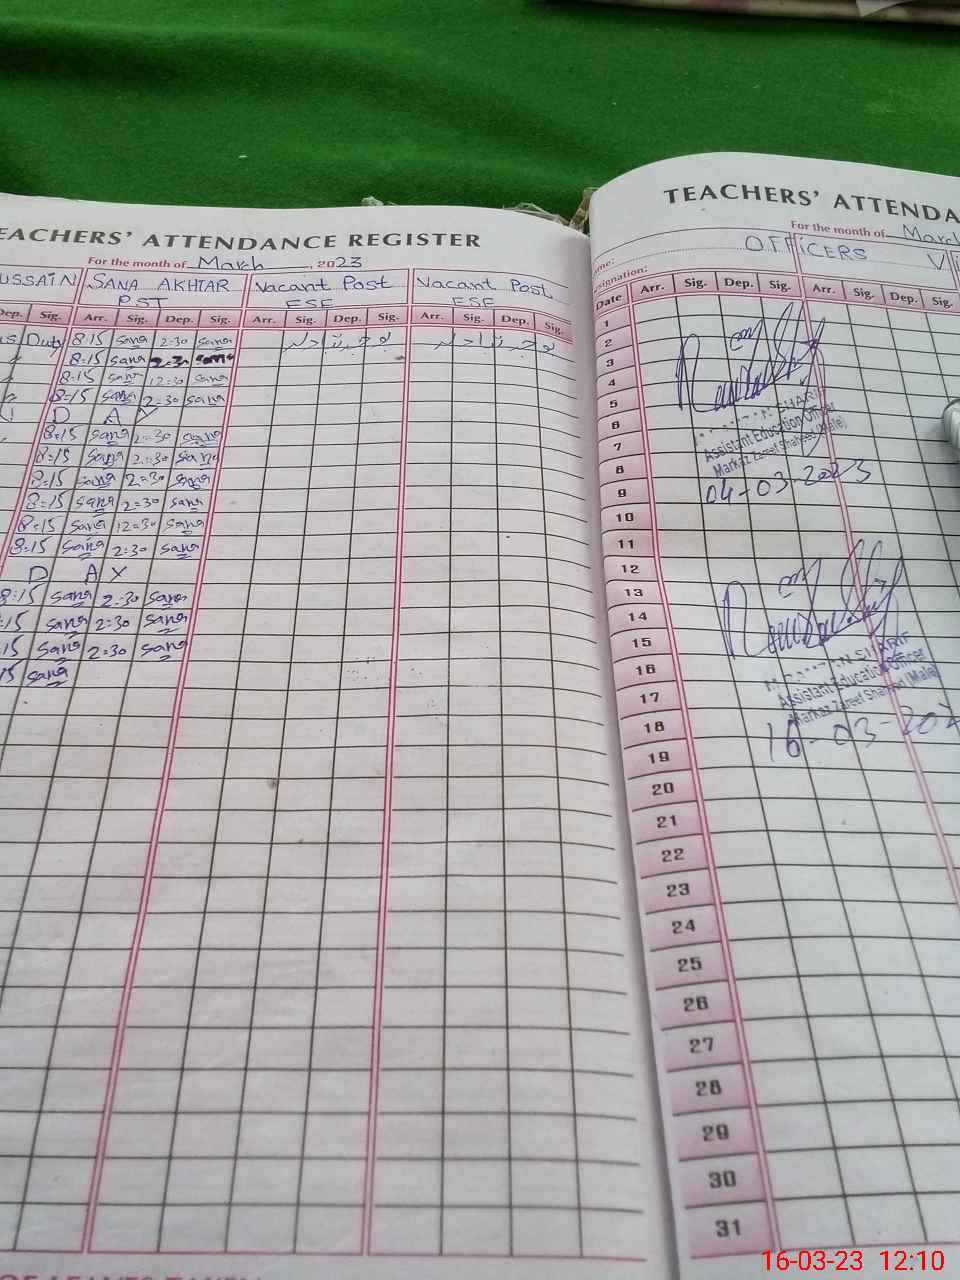 TEACHERS' ATTENDANCE REGISTER
For the month of March, 2023
USSAIN SANA AKHTAR Vacant Post Vacant Post
PST ESE ESE
Dep. Sig. Arr. Sig. Dep. Sig. Arr. Sig. Dep. Sig. Arr. Sig. Dep. Sig.
Duty 8:15 sana 2:30 sana
8:15 sana 2:30 sana
8:15 sana 12:30 sana
8:15 sana 2:30 sana
D A Y
8:15 sana 2:30 sana
8:15 sana 2:30 sana
8:15 sana 2:30 sana
8:15 sana 2:30 sana
8:15 sana 12:30 sana
8:15 sana 2:30 sana
D A Y
8:15 sana 2:30 sana
:15 sana 2:30 sana
15 sana 2:30 sana
15 sana
TEACHERS' ATTENDA
For the month of March
ame: OFFICERS VI
esignation:
Date Arr. Sig. Dep. Sig. Arr. Sig. Dep. Sig.
1
2
3
4
5
6
7
8
9
10
11
12
13
14
15
16
17
18
19
20
21
22
23
24
25
26
27
28
29
30
31
SHARIF
Assistant Education Officer
Markaz Zareef Shaheed (Male)
04-03-2023
SHARIF
Assistant Education Officer
Markaz Zareef Shaheed (Male)
16-03-202
16-03-23 12:10